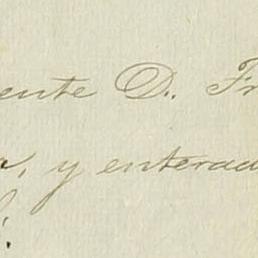 ente D. Fr
a, y enterad